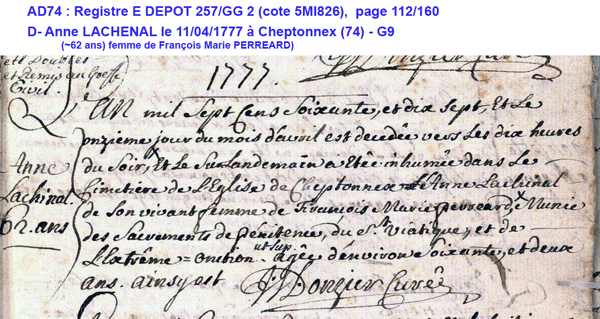 AD74 : Registre E DEPOT 257/GG 2 (cote 5MI826), page 112/160
D- Anne LACHENAL le 11/04/1777 à Cheptonnex (74) - G9
(~62 ans) femme de François Marie PERREARD)
et Doubles
et Remis au Greffe
Civil.
1777.
L'an mil Sept Cens Soixante, et dix Sept, Et Le
onzieme jour du mois d'avril est decedée vers Les dix heures
du Soir, Et Le Surlandemain a Etée inhumée dans Le
Cimetière de L'Eglise de Cheptonnex Anne Lachinal
de Son vivant femme de François Marie perreard Munie
des Sacrements de pénitence, du St Viatique, et de
L'Extrême = onction ut Sup. agée d'environ Soixante, et deux
ans. ainsy est J. Donzier Curé
Anne
Lachinal.
62. ans